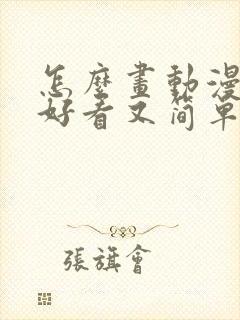 怎麼畫動漫
好看又简單
張旗會